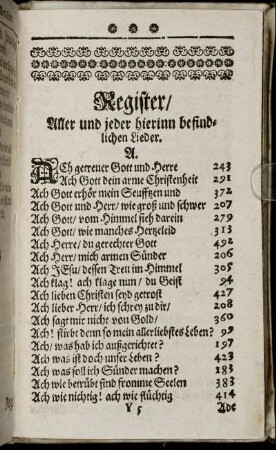 Register/
Aller und jeder hierinn befind-
lichen Lieder.
A.
ACh getreuer Gott und Herre 243
Ach Gott dein arme Christenheit 291
Ach Gott erhör mein Seufftzen und 372
Ach Gott und Herr/ wie groß und schwer 207
Ach Gott/ vom Himmel sieh darein 279
Ach Gott/ wie manches Hertzeleid 313
Ach Herre/ du gerechter Gott 492
Ach Herr/ mich armen Sünder 206
Ach JEsu/ dessen Treu im Himmel 305
Ach klag! ach klage nun/ du Geist 94
Ach lieben Christen seyd getrost 427
Ach lieber Herr/ ich schrey zu dir/ 208
Ach sagt mir nicht von Gold/ 360
Ach! stirbt denn so mein allerliebstes Leben? 99
Ach/ was hab ich außgerichtet? 197
Ach was ist doch unser Leben? 423
Ach was soll ich Sünder machen? 183
Ach wie betrübt sind fromme Seelen 383
Ach wie nichtig! ach wie flüchtig 414
Y 5 Ade